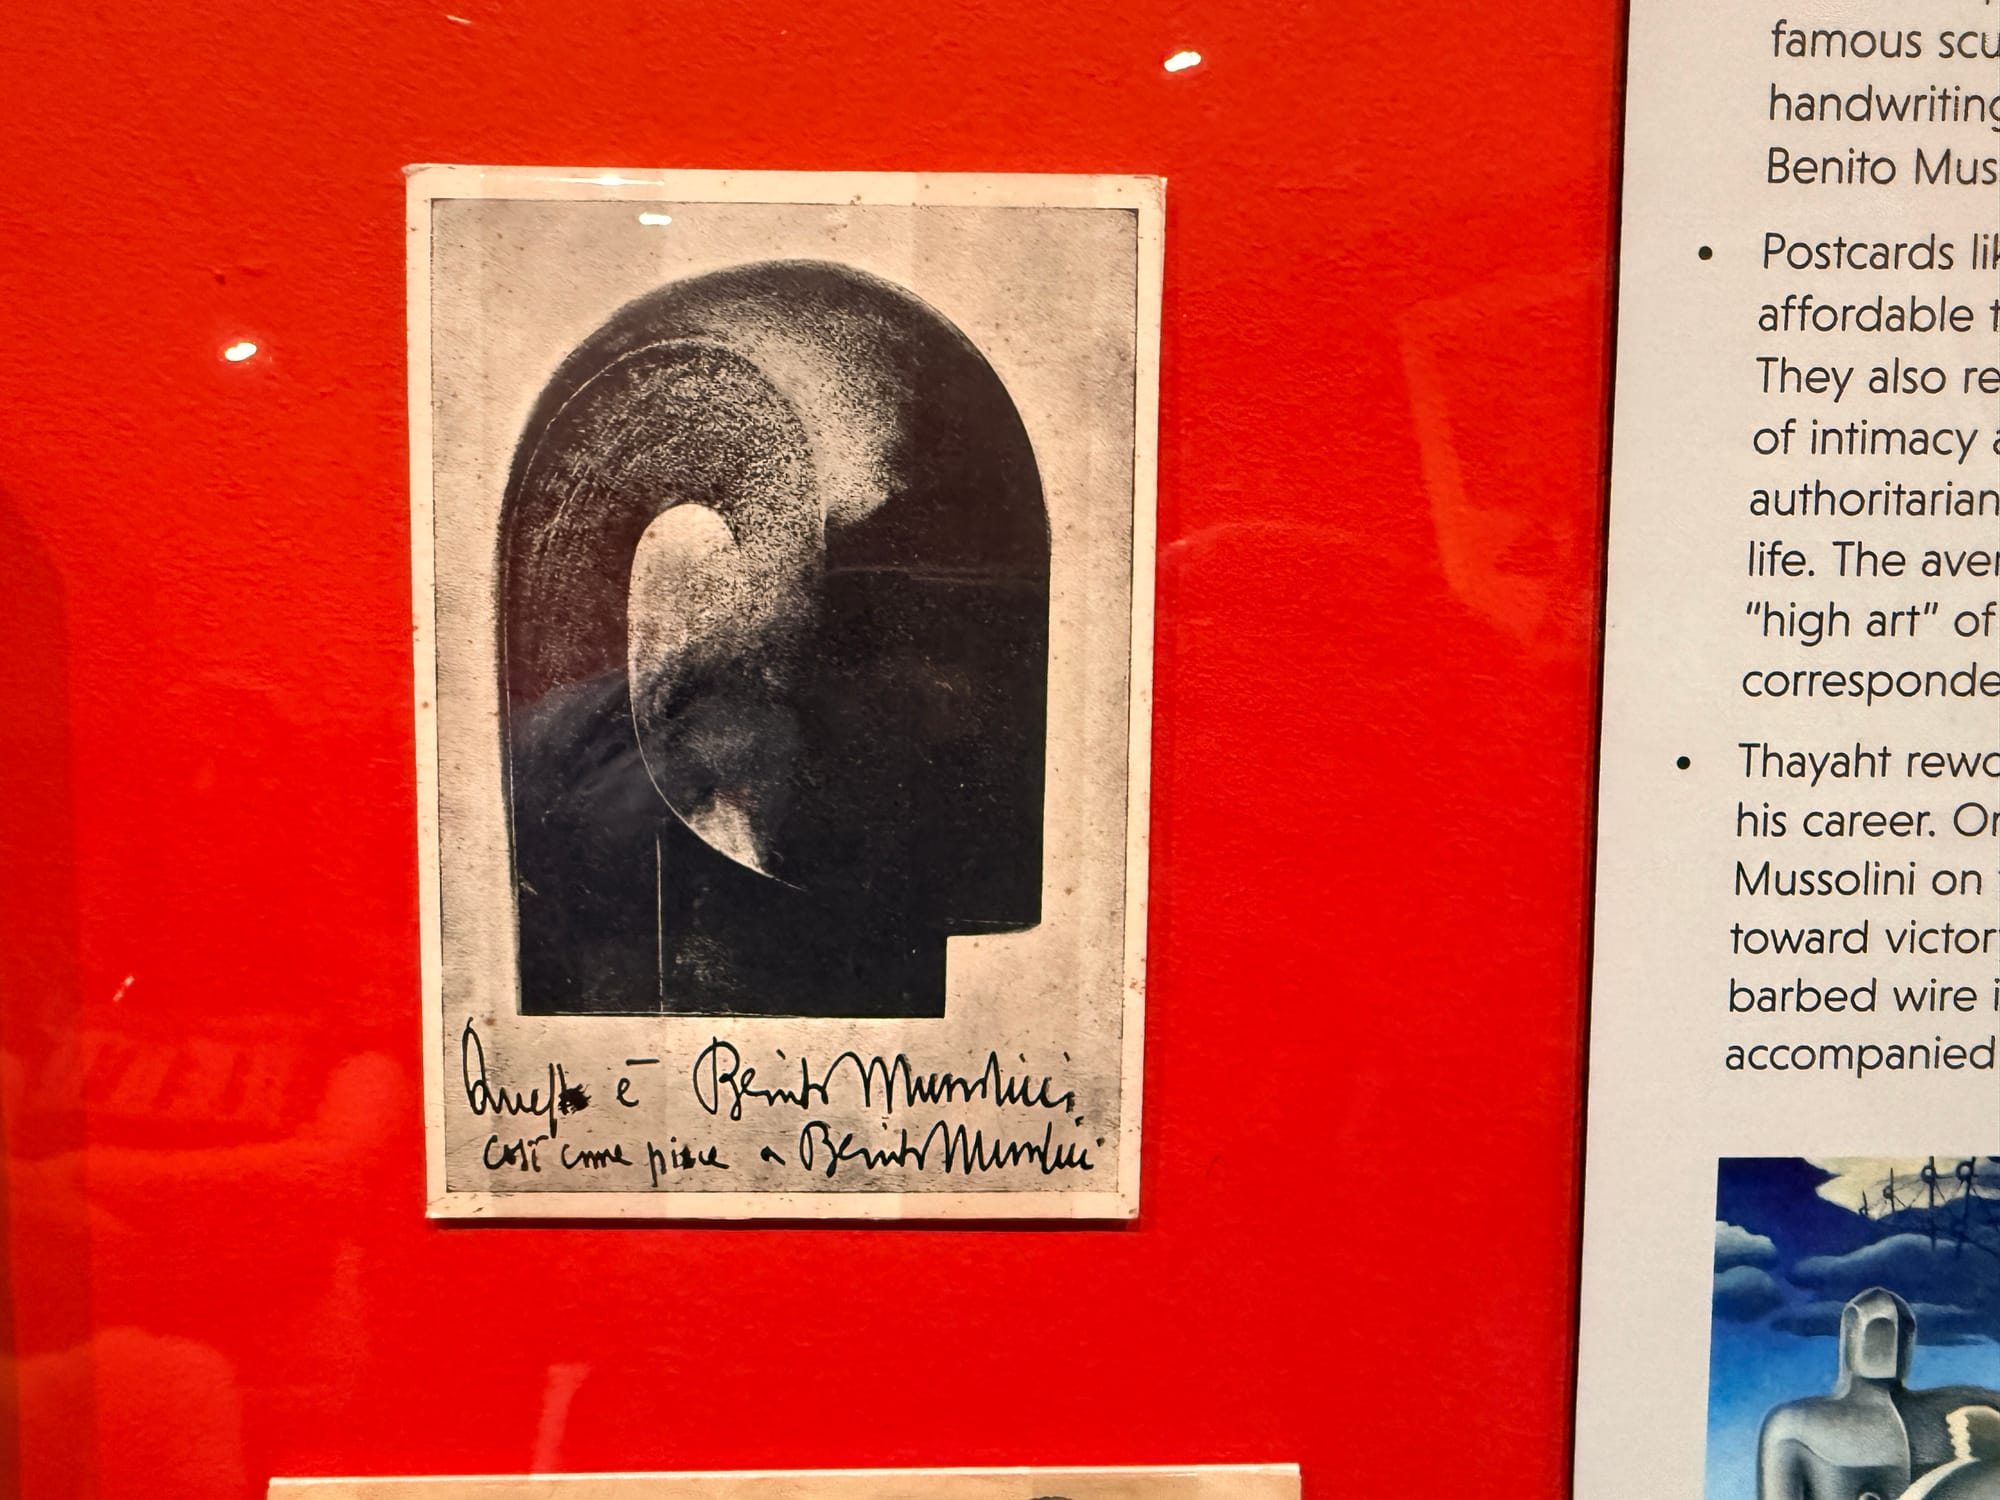 Questo è Benito Mussolini
così come piace a Benito Mussolini
famous scu
handwriting
Benito Mus
• Postcards lik
affordable t
They also re
of intimacy a
authoritarian
life. The aver
"high art" of
corresponde
• Thayaht rewo
his career. On
Mussolini on
toward victor
barbed wire i
accompanied